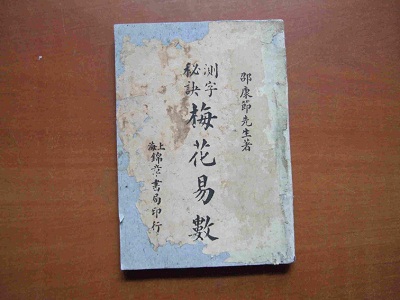 邵康節先生著
測字
秘訣
梅花易數
上海
錦章書局印行